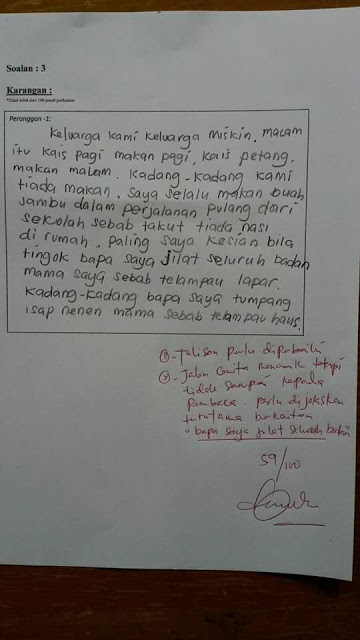 Soalan : 3
Karangan :
*Tidak lebih dari 100 patah perkataan
Perenggan -1:
Keluarga kami keluarga miskin. macam
itu kais pagi makan pagi, kais petang.
makan malam. Kadang-kadang kami
tiada makan. Saya selalu makan buah
jambu dalam perjalanan pulang dari
sekolah sebab takut tiada nasi
di rumah. Paling saya kesian bila
tingok bapa saya jilat seluruh badan
mama saya sebab telampau lapar.
Kadang-kadang bapa saya tumpang
isap nenen mama sebab telampau haus.
① - Tulisan perlu diperbaiki
② - Jalan cerita menarik tetapi
tidak sampai kepada
pembaca. perlu dijelaskan
terutama berkaitan
" bapa saya jilat seluruh badan"
59/100